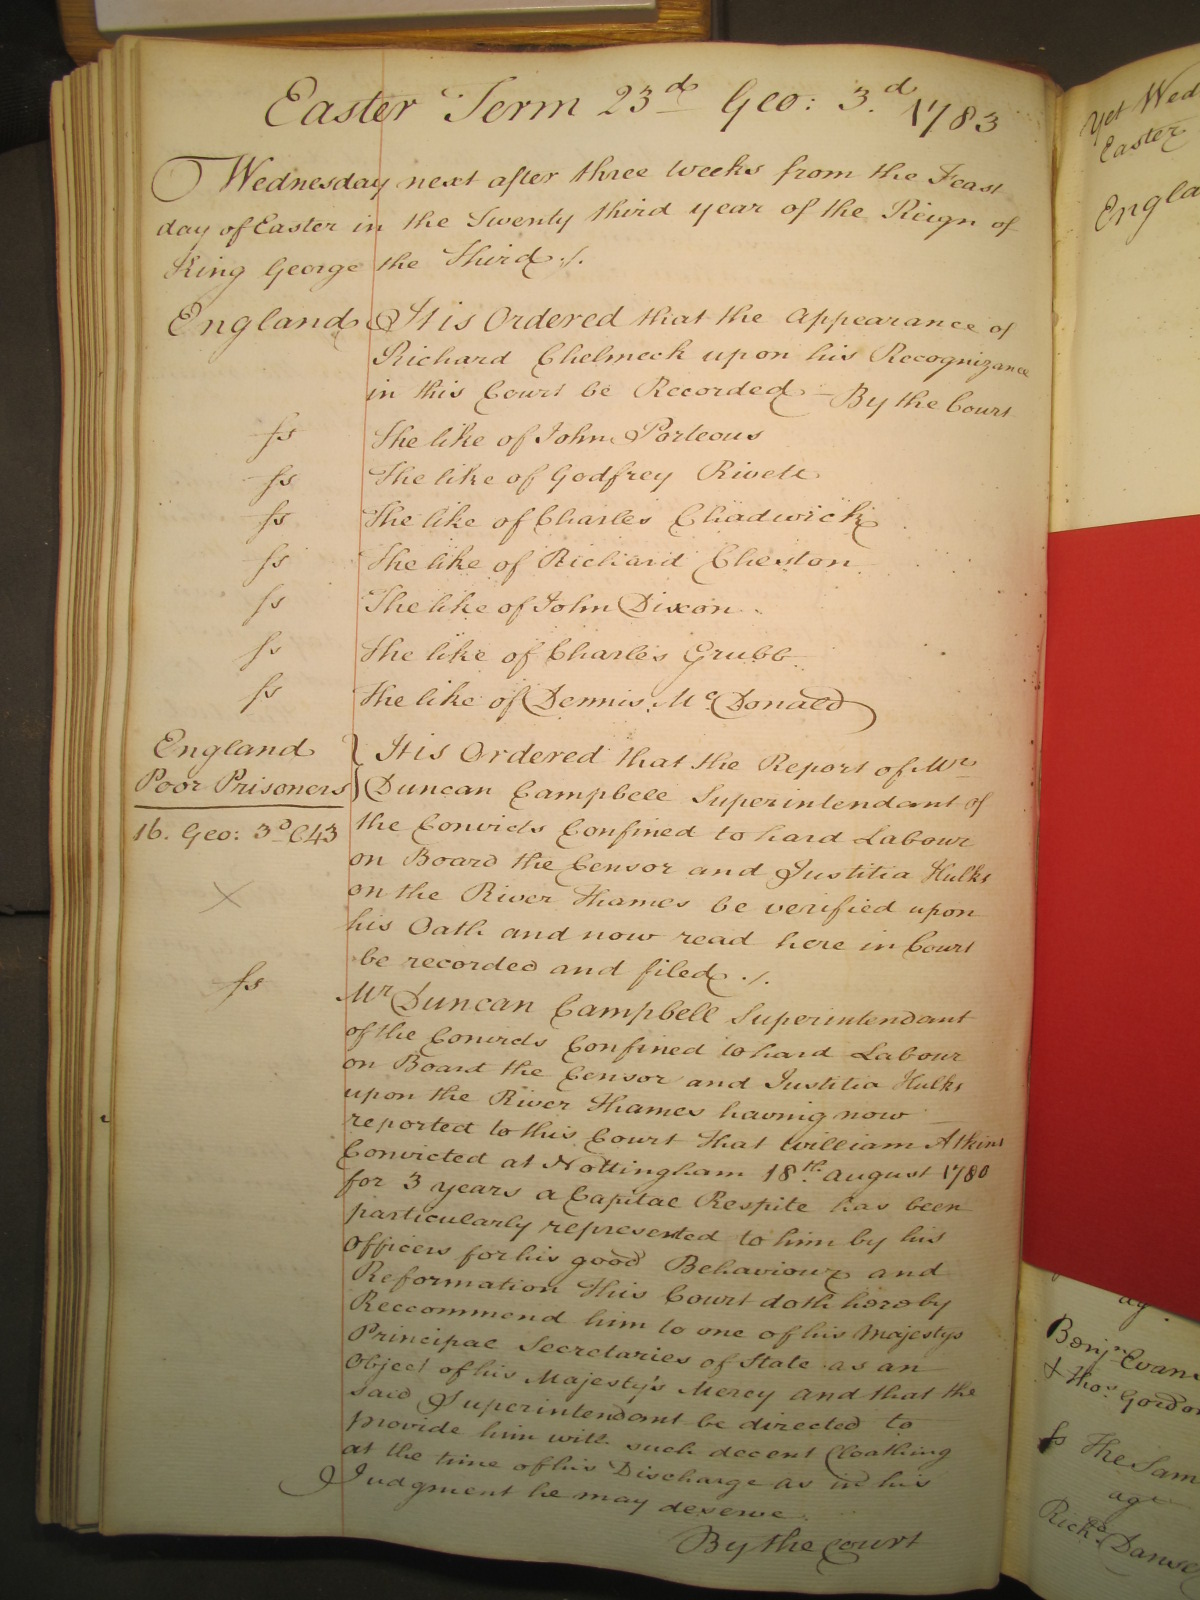 Easter Term 23d Geo: 3.d 1783
Wednesday next after three Weeks from the Feast
day of Easter in the Twenty third year of the Reign of
King George the Third ./.
England It is Ordered that the appearance of
Richard Chelmeck upon his Recognizance
in this Court be Recorded – By the Court
ss The like of John Porteous
ss The like of Godfrey Rivett
ss The like of Charles Chadwick
ss The like of Richard Cheston
ss The like of John Dixon
ss The like of Charles Grubb
ss The like of Dennis Mc Donald
England } It is Ordered that the Report of Mr
Poor Prisoners } Duncan Campbell Superintendant of
16. Geo: 3d C43 the Convicts Confined to hard Labour
on Board the Censor and Justitia Hulks
on the River Thames be verified upon
his Oath and now read here in Court
be recorded and filed ./.
ss Mr Duncan Campbell Superintendant
of the Convicts Confined to hard Labour
on Board the Censor and Justitia Hulks
upon the River Thames having now
reported to this Court that William Atkins
Convicted at Nottingham 18th august 1780
for 3 years a Capital Respite has been
particularly represented to him by his
officers for his good Behaviour and
Reformation This Court doth hereby
Reccommend him to one of his Majestys
Principal Secretaries of State as an
Object of his Majesty's Mercy and that the
said Superintendant be directed to
provide him with such decent Cloathing
at the time of his Discharge as in his
Judgment he may deserve
By the Court
Yet Wed
Easter
Engla
Benjn Evans
& Thos Gordon
ss The Sam
ag
Richd